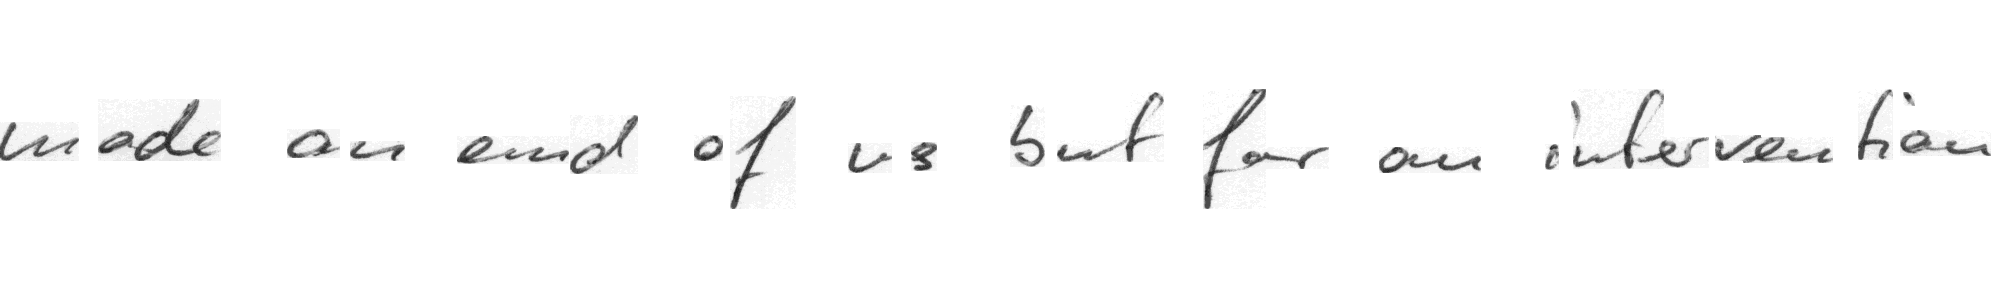 made an end of us but for an intervention